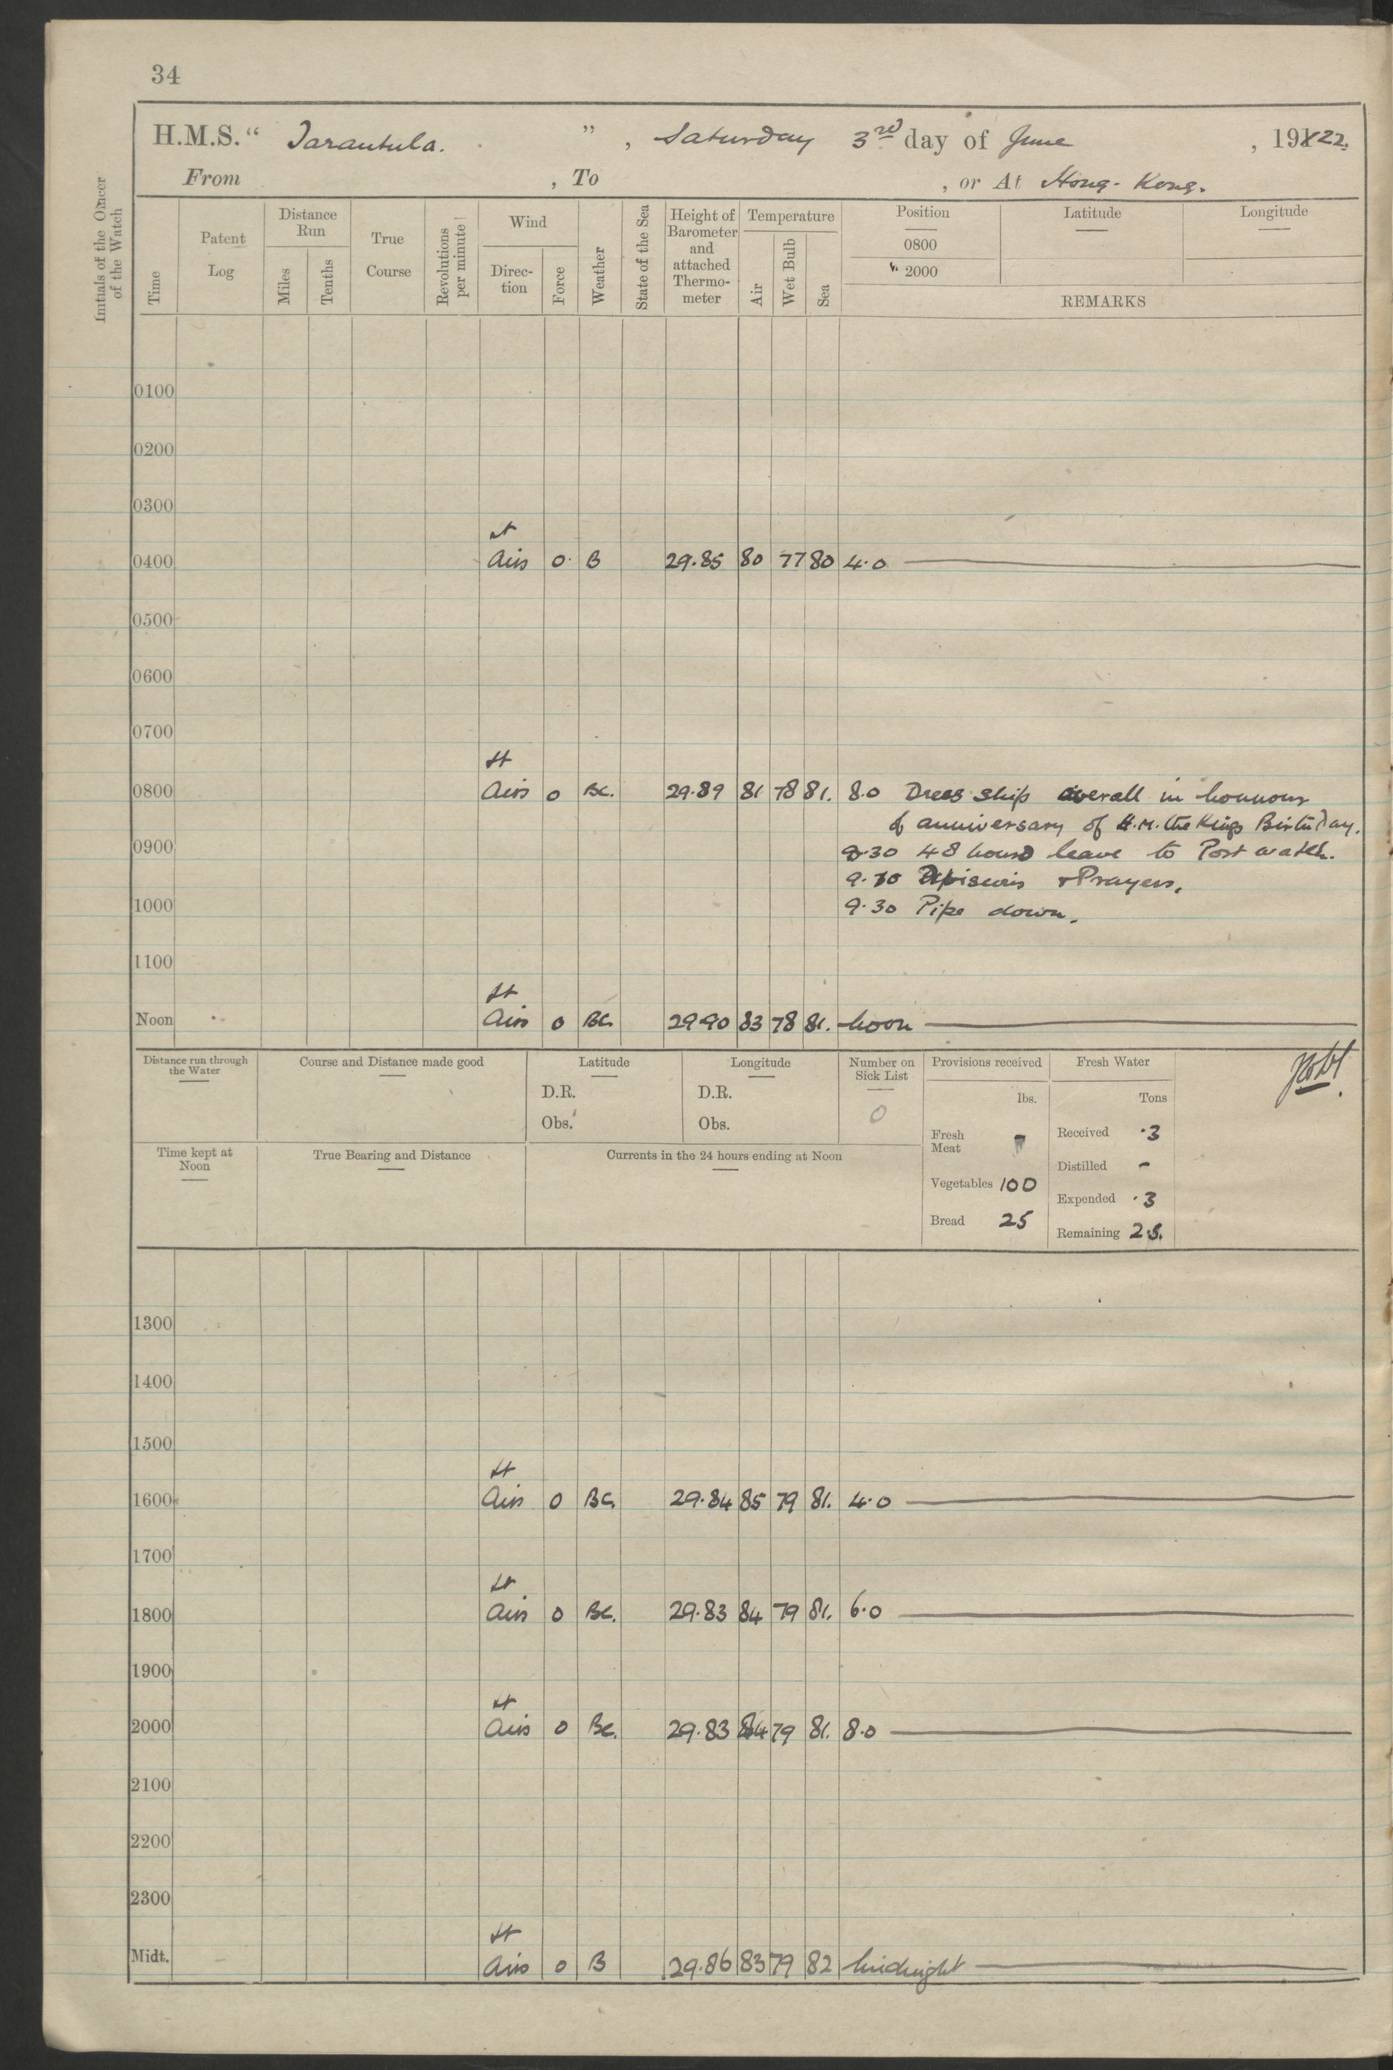 34
H.M.S. “ Tarantula. ”, Saturday 3rd day of June, 1922.
From , To , or At Hong-Kong.
Initials of the Officer of the Watch
Time
Patent Log
Distance Run
Miles
Tenths
True Course
Revolutions per minute
Wind
Direction
Force
Weather
State of the Sea
Height of Barometer and attached Thermometer
Temperature
Air
Wet Bulb
Sea
Position
0800
2000
Latitude
Longitude
REMARKS
0100
0200
0300
lt
0400 airs 0 B 29.85 80 77 80 4.0
0500
0600
0700
lt
0800 airs 0 BC. 29.89 81 78 81. 8.0 Dress ship overall in honnour
of anniversary of H.M. the Kings Birthday.
0900 9.30 48 hours leave to Port watch.
9.10 Divisions & Prayers.
1000 9.30 Pipe down.
1100
lt
Noon airs 0 BC. 29.90 83 78 81. noon
Distance run through the Water
Course and Distance made good
Latitude
D.R.
Obs.
Longitude
D.R.
Obs.
Number on Sick List
0
Provisions received
lbs.
Fresh Meat -
Vegetables 100
Bread 25
Fresh Water
Tons
Received .3
Distilled -
Expended .3
Remaining 2.8.
Time kept at Noon
True Bearing and Distance
Currents in the 24 hours ending at Noon
1300
1400
1500
lt
1600 airs 0 BC. 29.84 85 79 81. 4.0
1700
lt
1800 airs 0 BC. 29.83 84 79 81. 6.0
1900
lt
2000 airs 0 BC. 29.83 84 79 81. 8.0
2100
2200
2300
lt
Midt. airs 0 B 29.86 83 79 82 Midnight